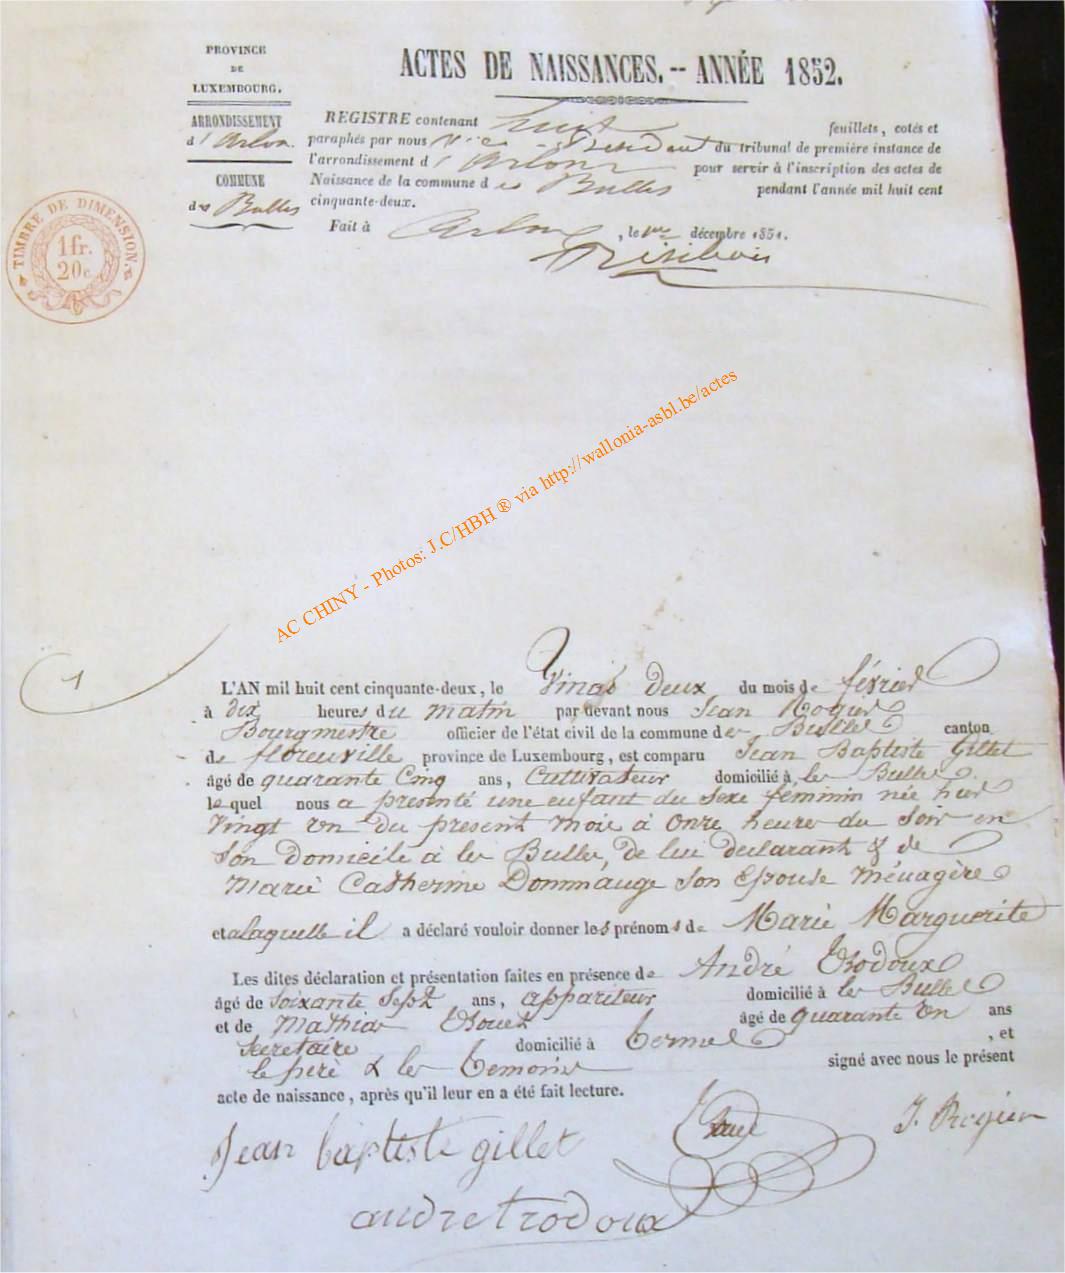 PROVINCE
DE
LUXEMBOURG.
ARRONDISSEMENT
d'Arlon
COMMUNE
des Bulles
TIMBRE DE DIMENSION.
1 fr.
20 c
ACTES DE NAISSANCES. -- ANNÉE 1852.
REGISTRE contenant huit feuillets, cotés et
paraphés par nous Vice-Président du tribunal de première instance de
l'arrondissement d'Arlon pour servir à l'inscription des actes de
Naissance de la commune des Bulles pendant l'année mil huit cent
cinquante-deux.
Fait à Arlon, le 1er décembre 1851.
AC CHINY - Photos: J.C/HBH ® via http://wallonia-asbl.be/actes
1
L'AN mil huit cent cinquante-deux, le Vingt deux du mois de février
à dix heures du matin par devant nous Jean Rogier
Bourgmestre officier de l'état civil de la commune des Bulles canton
de florenville province de Luxembourg, est comparu Jean Baptiste Gillet
âgé de quarante Cinq ans, Cultivateur domicilié à les Bulles
lequel nous a présenté une enfant du sexe féminin née hier
Vingt un du present mois à onze heure du Soir en
Son domicile à les Bulles, de lui déclarant & de
Marie Catherine Dommange Son Epouse Ménagère
et a laquelle il a déclaré vouloir donner les prénoms de Marie Marguerite
Les dites déclaration et présentation faites en présence de André Trodoux
âgé de Soixante Sept ans, appariteur domicilié à les Bulles
et de Mathias âgé de quarante un ans
Secretaire domicilié à Termes, et
le père & les temoins signé avec nous le présent
acte de naissance, après qu'il leur en a été fait lecture.
J. Rogier
Jean baptiste gillet
andre trodoux